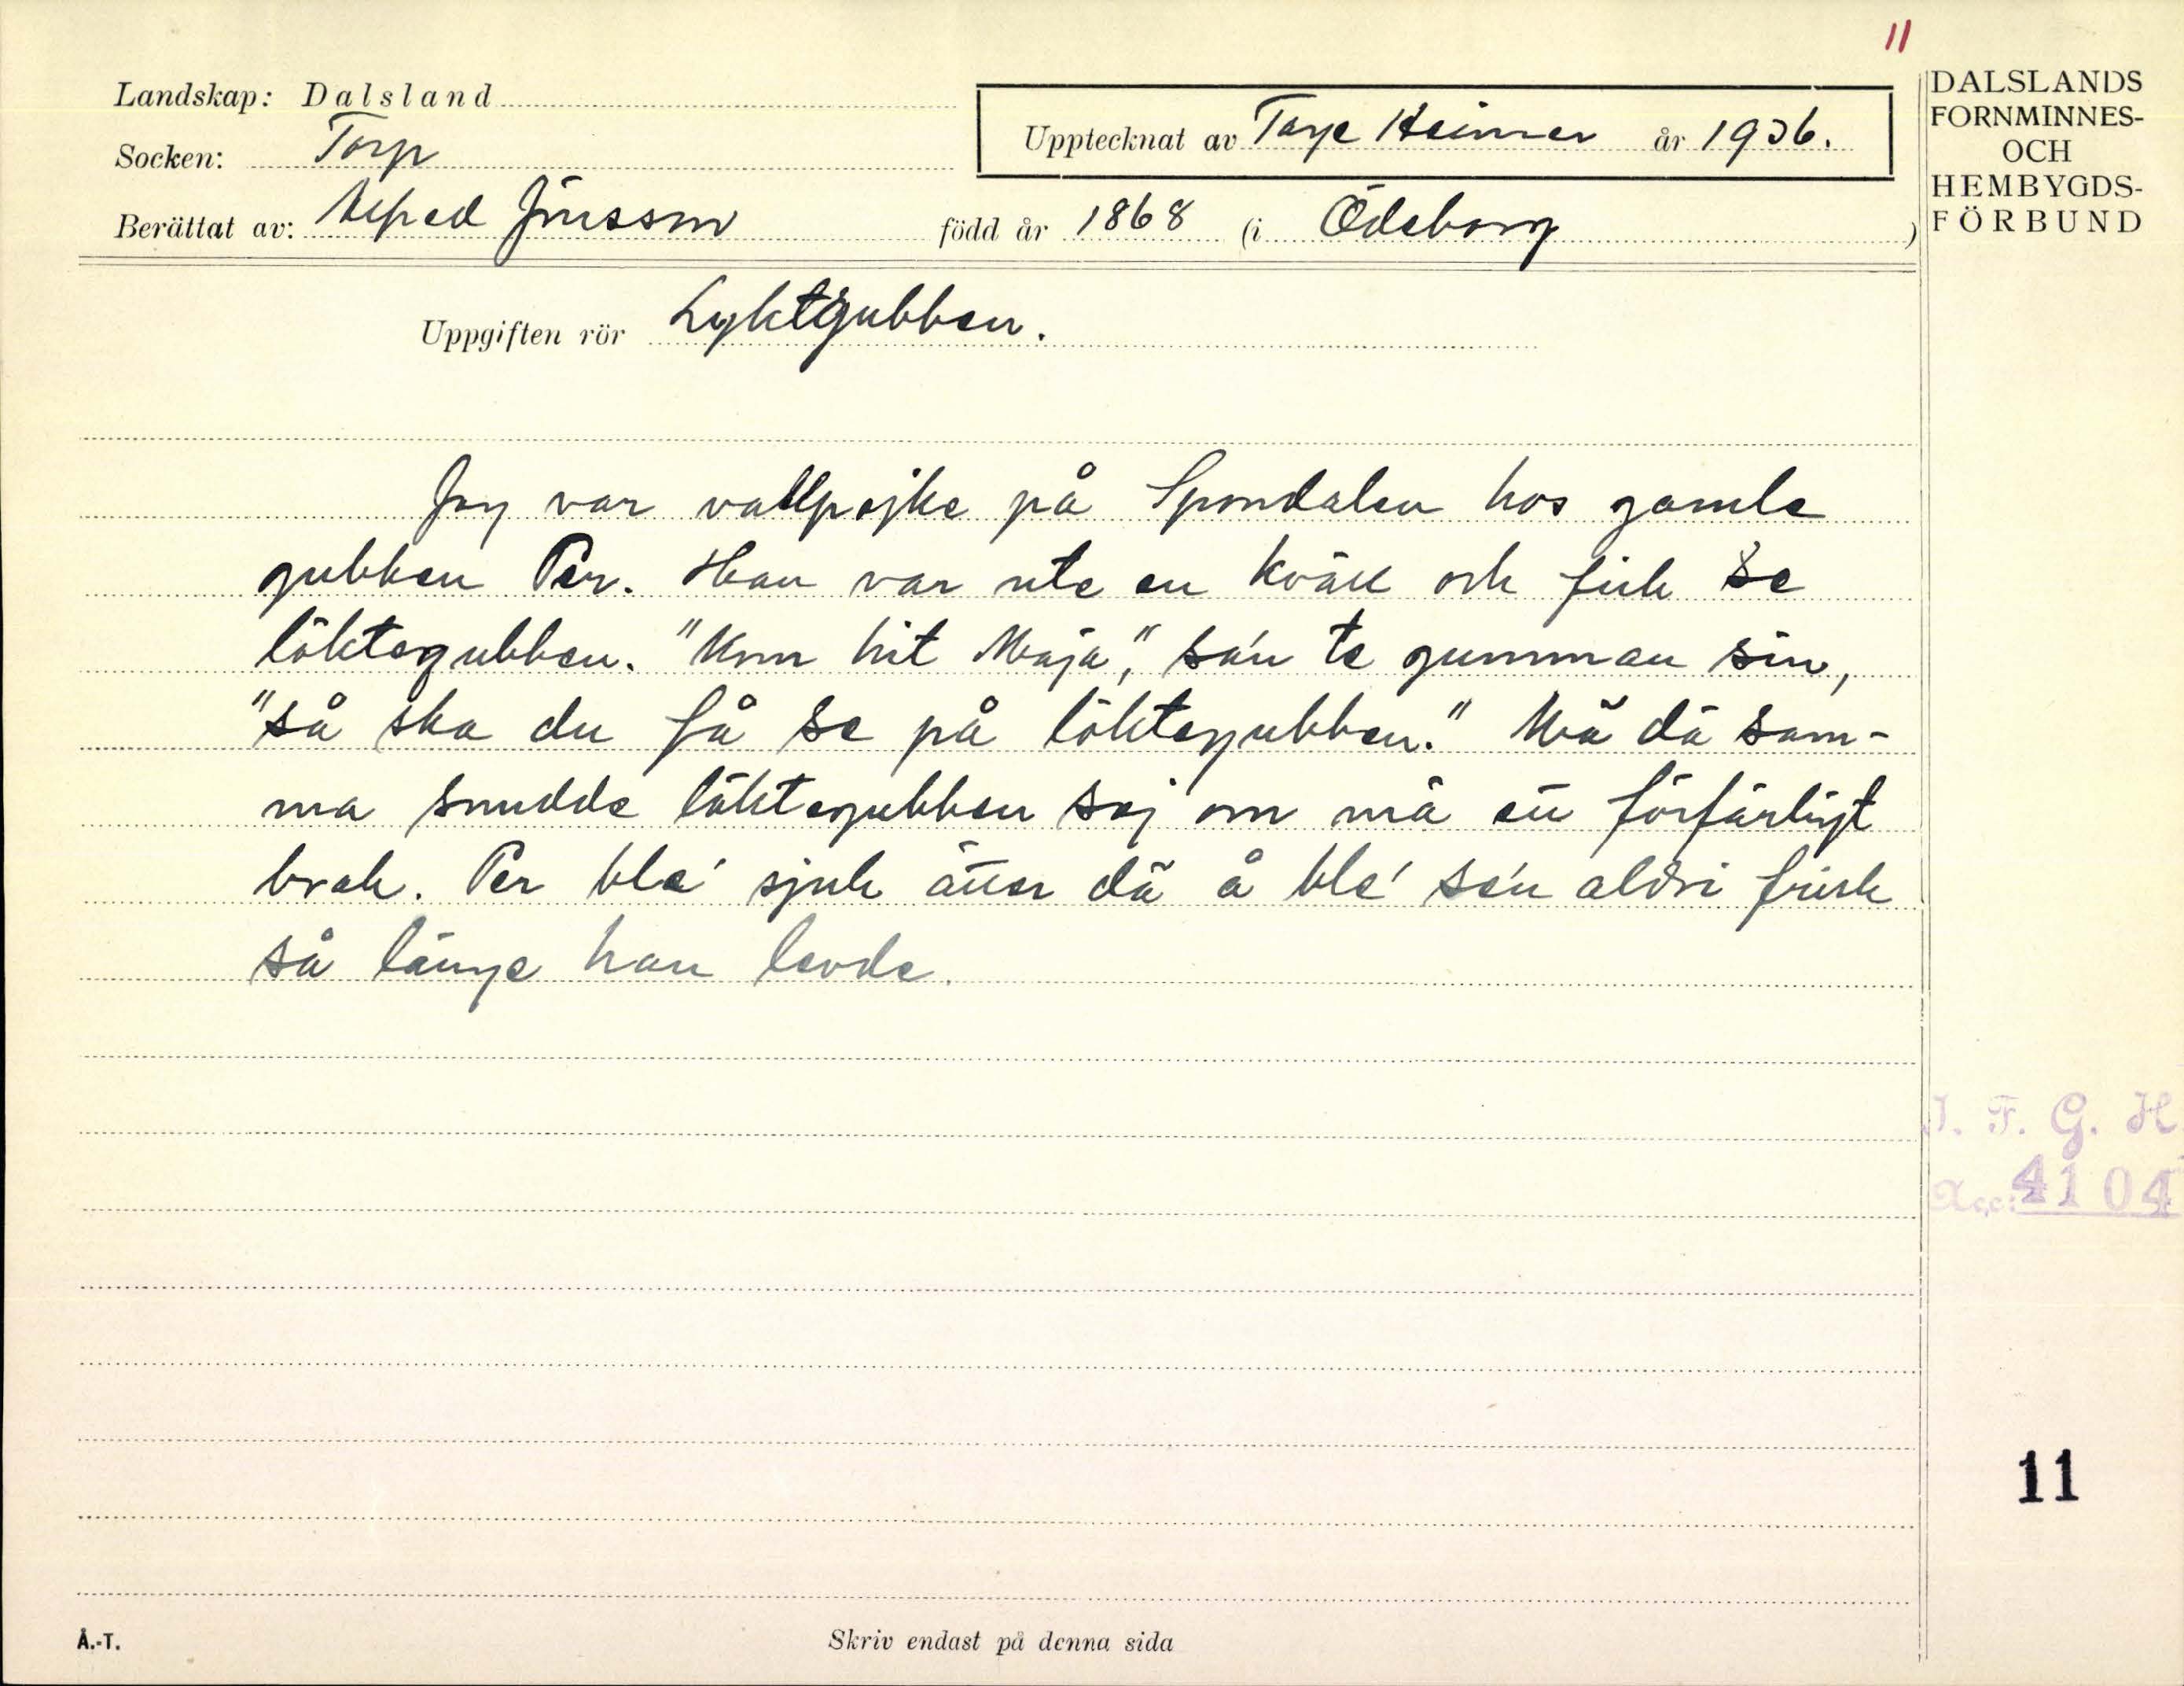 11
Landskap: Dalsland
Socken: Torp
Upptecknat av Tage Heimer år 1936.
Berättat av: Alfred Jonsson född år 1868 (i Ödeborg )
DALSLANDS
FORNMINNES-
OCH
HEMBYGDS-
FÖRBUND
Uppgiften rör Lyktgubben.
Jag var vallpojke på Spondalen hos gamle
gubben Per. Han var ute en kväll och fick se
löktegubben. "Kom hit Maja," sa'n te gumman sin,
"så ska du få se på löktegubben." Mä dä sam-
ma snudde löktegubben sej om mä ett förfärligt
brak. Per ble' sjuk ätter dä å ble' se'n aldri frisk
så länge han levde.
I. F. G. H
Acc: 4104
11
Å.-T.
Skriv endast på denna sida